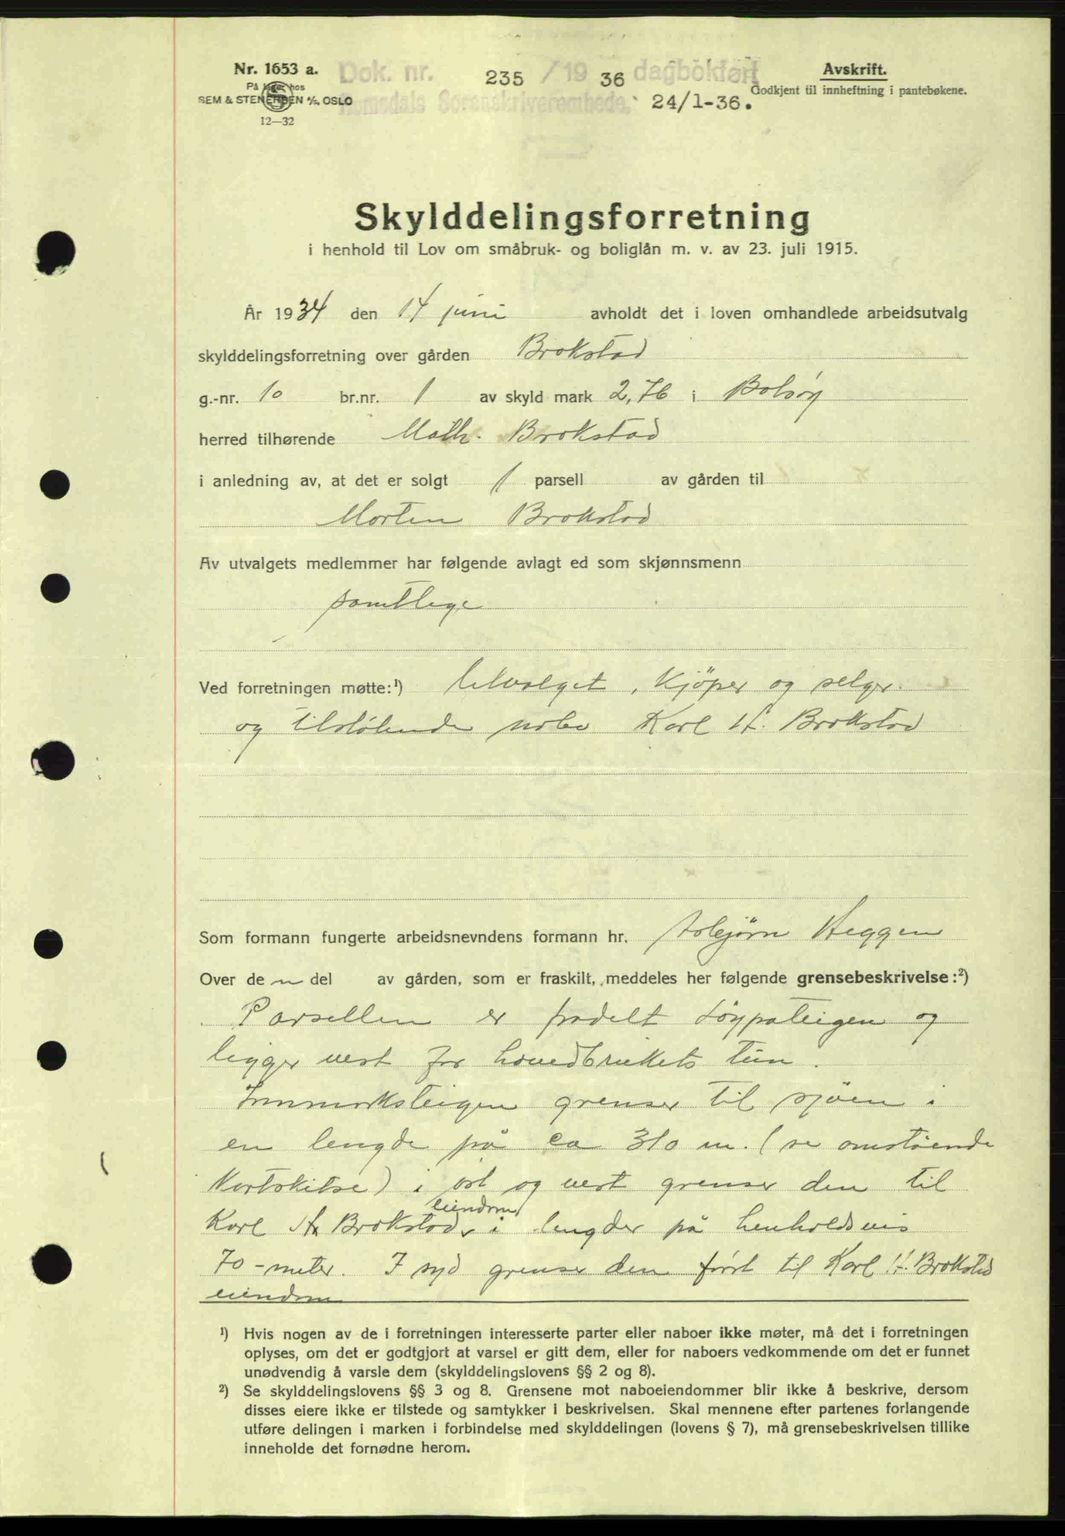 Nr. 1653 a. Dok. nr. 235 /19 36 dagbokført Avskrift.
På lager hos
SEM & STENERSEN A/S, OSLO Romsdals Sorenskriverembede. 24/1-36. Godkjent til innheftning i pantebøkene.
12—32
Skylddelingsforretning
i henhold til Lov om småbruk- og boliglån m. v. av 23. juli 1915.
År 1934 den 14 juni avholdt det i loven omhandlede arbeidsutvalg
skylddelingsforretning over gården Brokstad
g.-nr. 10 br.nr. 1 av skyld mark 2,76 i Bolsøy
herred tilhørende Math. Brokstad
i anledning av, at det er solgt 1 parsell av gården til
Morten Brokstad
Av utvalgets medlemmer har følgende avlagt ed som skjønnsmenn
samtlege
Ved forretningen møtte:¹) Utvalget, kjøper og selger.
og tilstøtende nabo Karl H. Brokstad
Som formann fungerte arbeidsnevndens formann hr. Asbjørn Heggen
Over de n del av gården, som er fraskilt, meddeles her følgende grensebeskrivelse:²)
Parsellen er fradelt Løypateigen og
ligger vest for hovedbrukets tun.
Innmarksteigen grenser til sjøen i
en lengde på ca 310 m. (se omstående
Kartskitse) i øst og vest grenser den til
eiendom
Karl H. Brokstads i lengder på henholdsvis
70 - meter. I syd grenser den først til Karl H. Brokstad
eiendom
¹) Hvis nogen av de i forretningen interesserte parter eller naboer ikke møter, må det i forretningen
oplyses, om det er godtgjort at varsel er gitt dem, eller for naboers vedkommende om det er funnet
unødvendig å varsle dem (skylddelingslovens §§ 2 og 8).
²) Se skylddelingslovens §§ 3 og 8. Grensene mot naboeiendommer blir ikke å beskrive, dersom
disses eiere ikke er tilstede og samtykker i beskrivelsen. Skal mennene efter partenes forlangende
utføre delingen i marken i forbindelse med skylddelingen (lovens § 7), må grensebeskrivelsen tillike
inneholde det fornødne herom.